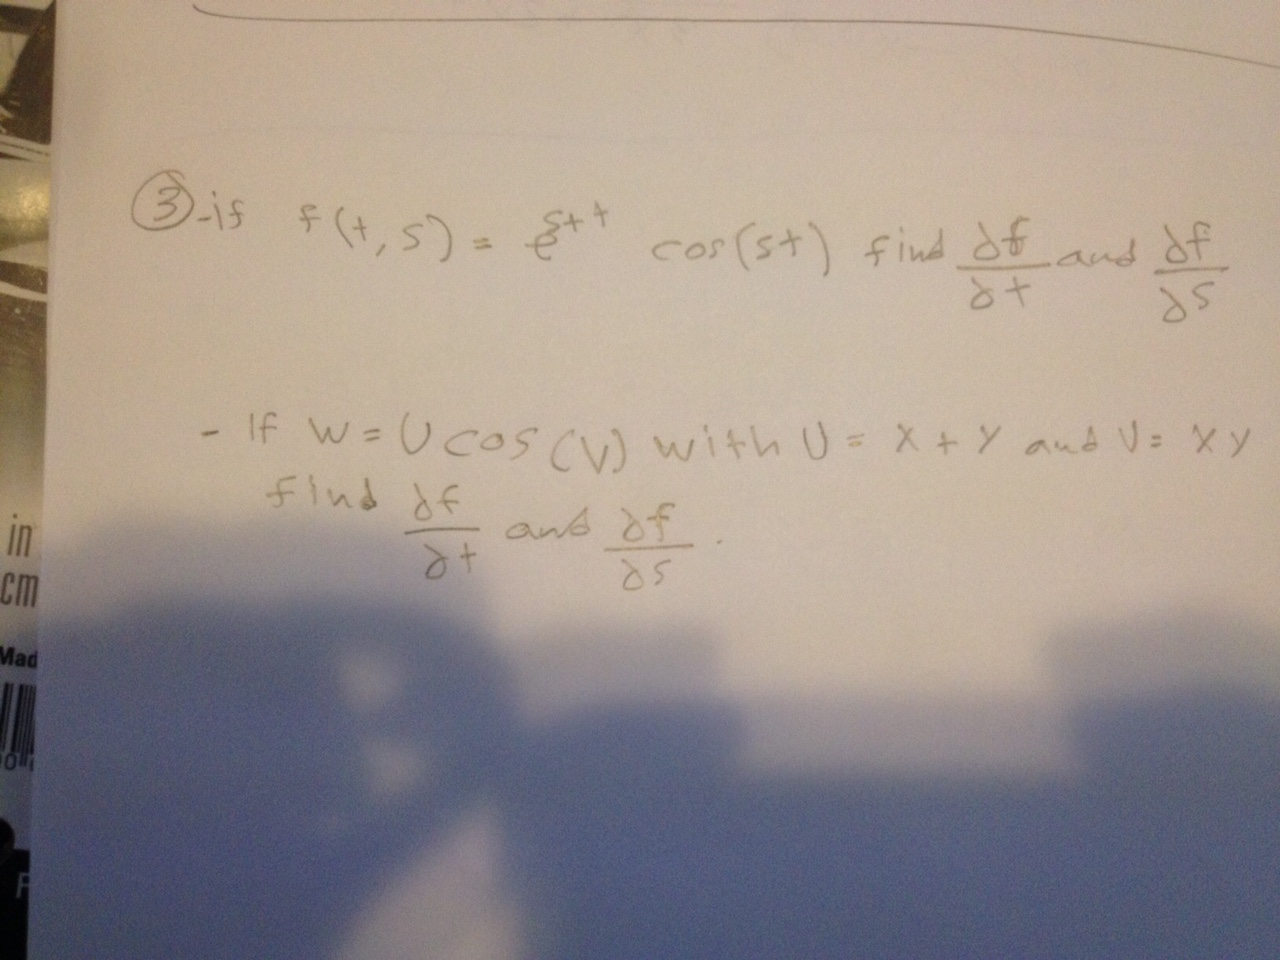 ③-if f(t,s) = e^{s+t} cos(st) find ∂f/∂t and ∂f/∂s
- If W = U cos(V) with U = X + Y and V = XY
find ∂f/∂t and ∂f/∂s .
in
cm
Mad
F